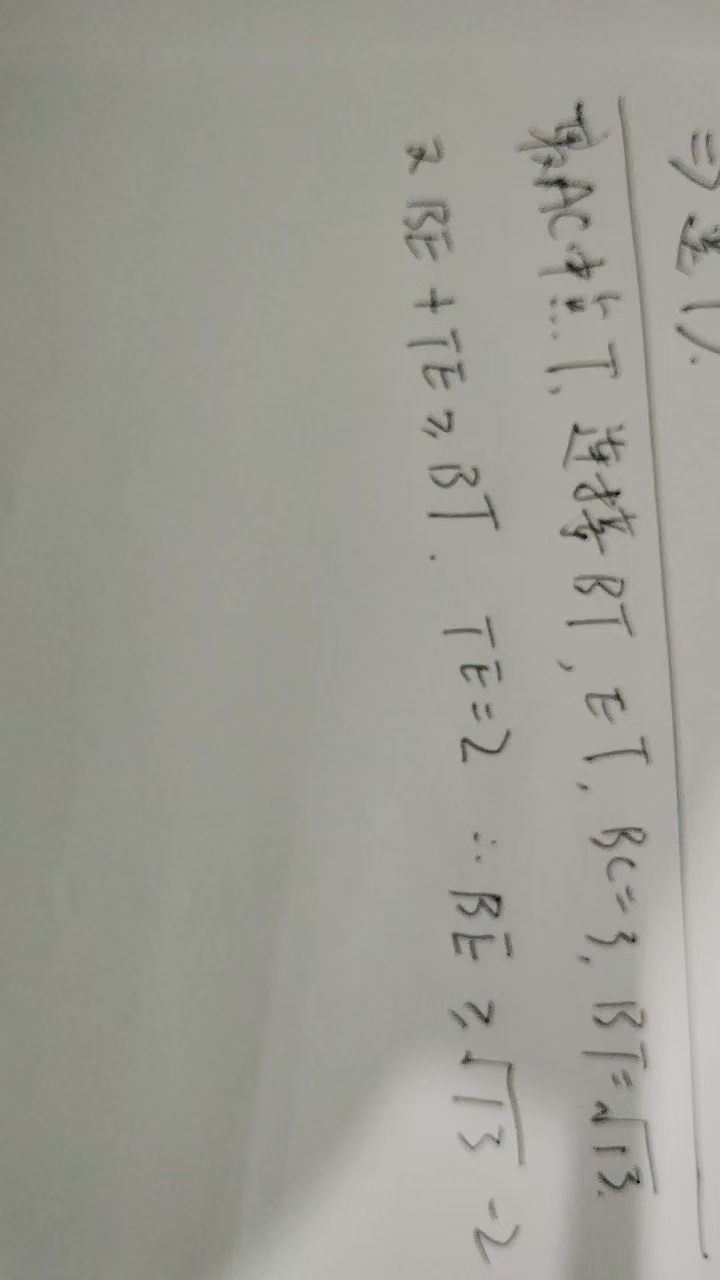 ⇒ 是 1).
取AC中点T, 连接BT, ET, BC=3, BT=√13.
又BE+TE≥BT. TE=2 ∴BE≥√13-2